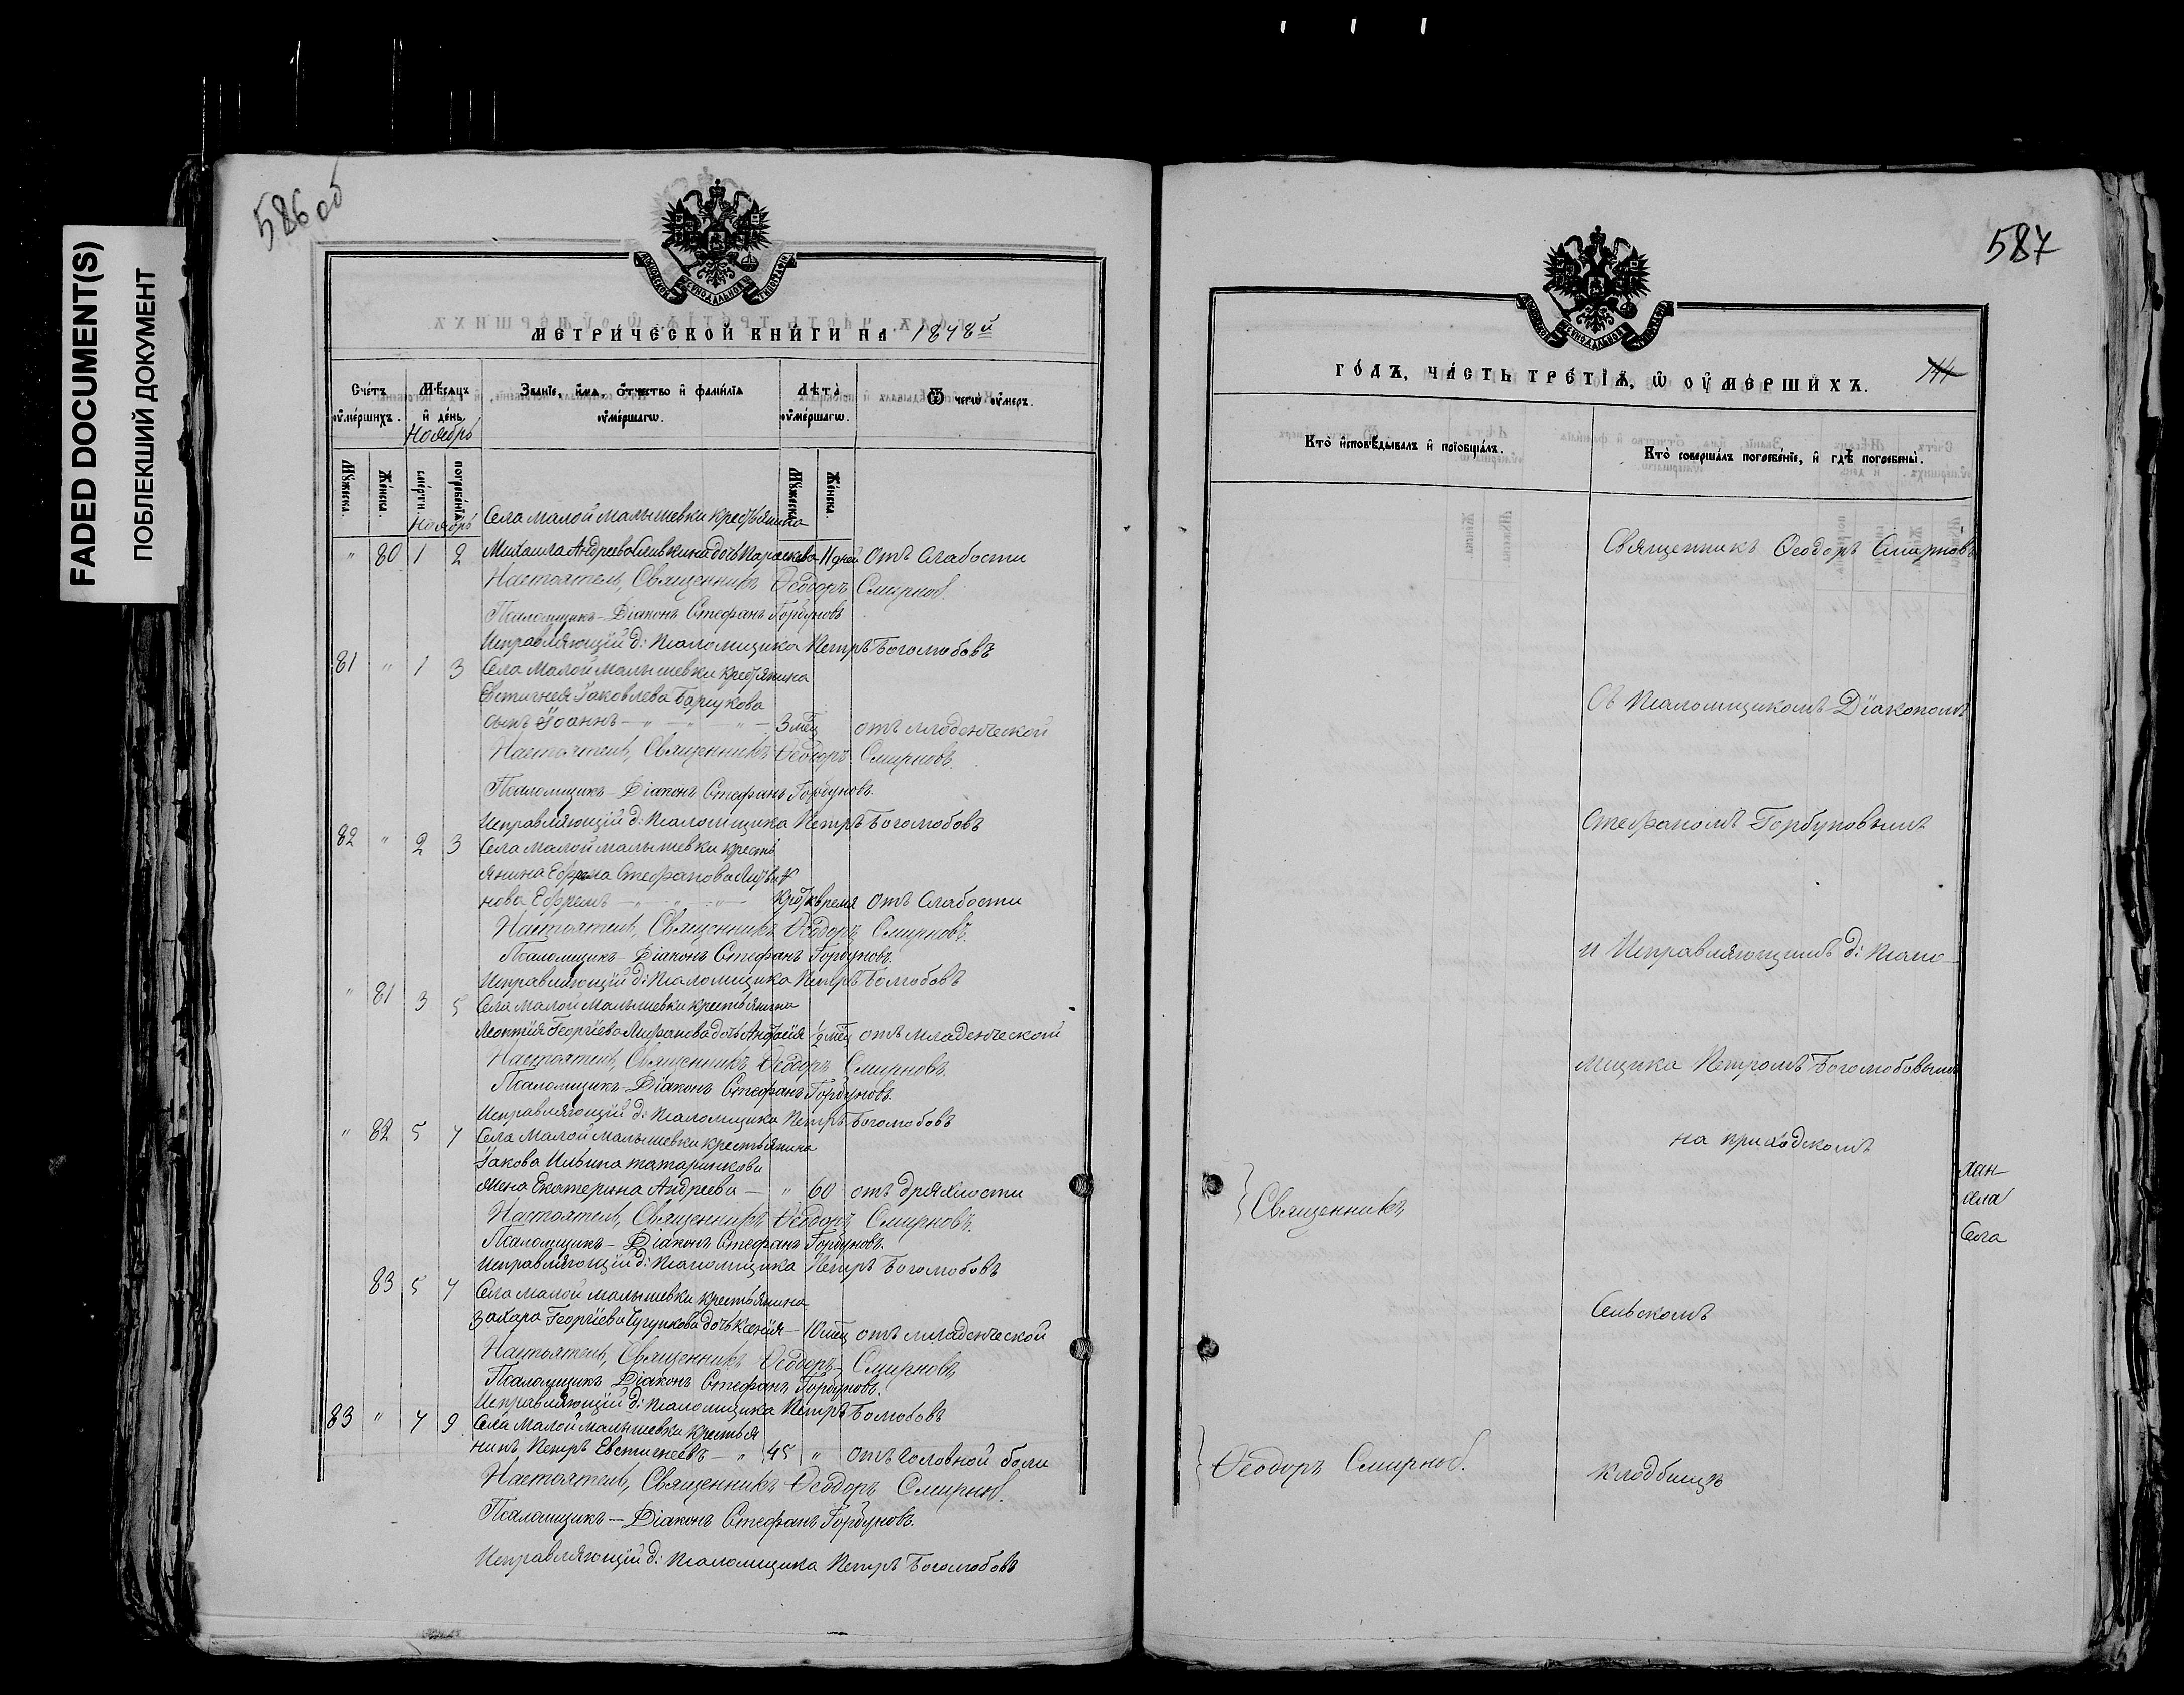 FADED DOCUMENT(S)
ПОБЛЕКШИЙ ДОКУМЕНТ
586 об
МЕТРИЧЕСКОЙ КНИГИ НА 1878й
Счетъ умершихъ.
Мѣсяцъ и день.
Званіе, имя, отчество и фамилія умершагѡ.
Лѣта умершагѡ.
Ѿ чегѡ умеръ.
Ноябрь
Мужеска.
Женска.
смерти.
погребенія.
Мужеска.
Женска.
Ноябрь Села малой малышевки крестьянина
" 80 1 2 Михаила Андреева Сливкина дочь Параскева 11 дней Отъ слабости
Настоятель, Священникъ Ѳеодоръ Смирнов.
Псаломщикъ - Діаконъ Стефанъ Горбуновъ
Исправляющій д: псаломщика Петръ Боголюбовъ
81 " 1 3 Села Малой малышевки крестьянина
Евстигнея Іаковлева Баршукова
сынъ Іоаннъ - " - " - " - 3 мец отъ младенческой
Настоятель, Священникъ Ѳеодоръ Смирновъ.
Псаломщикъ - Діаконъ Стефанъ Горбуновъ.
Исправляющій д: псаломщика Петръ Боголюбовъ
82 " 2 3 Села малой малышевки кресть
янина Ефрема Стефанова
нова Ефремъ - " - " - " - время отъ слабости
Настоятель, Священникъ Ѳеодоръ Смирновъ.
Псаломщикъ - Діаконъ Стефанъ Горбуновъ.
Исправляющій д: псаломщика Петръ Бомобовъ
" 81 3 5 Села малой Малышевки крестьянина
Леонтія Георгіева дочь Анфисія ½ мец отъ младенческой
Настоятель, Священникъ Ѳеодоръ Смирновъ.
Псаломщикъ - Діаконъ Стефанъ Горбуновъ.
Исправляющій д: псаломщика Петръ Боголюбовъ
" 82 5 7 Села Малой малышевки крестьянина
Іакова Ильина татаринкова
жена Екатерина Андреева - " 60 отъ дряхлости
Настоятель, Священникъ Ѳеодоръ Смирновъ.
Псаломщикъ - Діаконъ Стефанъ Горбуновъ.
Исправляющій д: псаломщика Петръ Боголюбовъ
83 5 7 Села малой малышевки крестьянина
Захара Георгіева Чугункова дочь Ксенія - 10 мец отъ младенческой
Настоятель, Священникъ Ѳеодоръ Смирновъ
Псаломщикъ Діаконъ Стефанъ Горбуновъ.
Исправляющій д: псаломщика Петръ Бомобовъ
83 " 7 9 Села Малой малышевки крестья
нинъ Петръ Евстигнеевъ - " 45 " отъ головной боли
Настоятель, Священникъ Ѳеодоръ Смирнов.
Псаломщикъ - Діаконъ Стефанъ Горбуновъ.
Исправляющій д: псаломщика Петръ Боголюбовъ
587
ГОДЪ, ЧАСТЬ ТРЕТІЯ, Ѡ УМЕРШИХЪ.
Кто исповѣдывалъ и пріобщалъ.
Кто совершалъ погребеніе, и гдѣ погребены.
Священникъ Ѳеодоръ Смирновъ
Съ псаломщикомъ Діакономъ
Стефаномъ Горбуновымъ
и Исправляющимъ д: псало-
мщика Петромъ Боголюбовымъ
на приходскомъ
Священникъ
Села
Сельскомъ
Ѳеодоръ Смирнов.
кладбищѣ